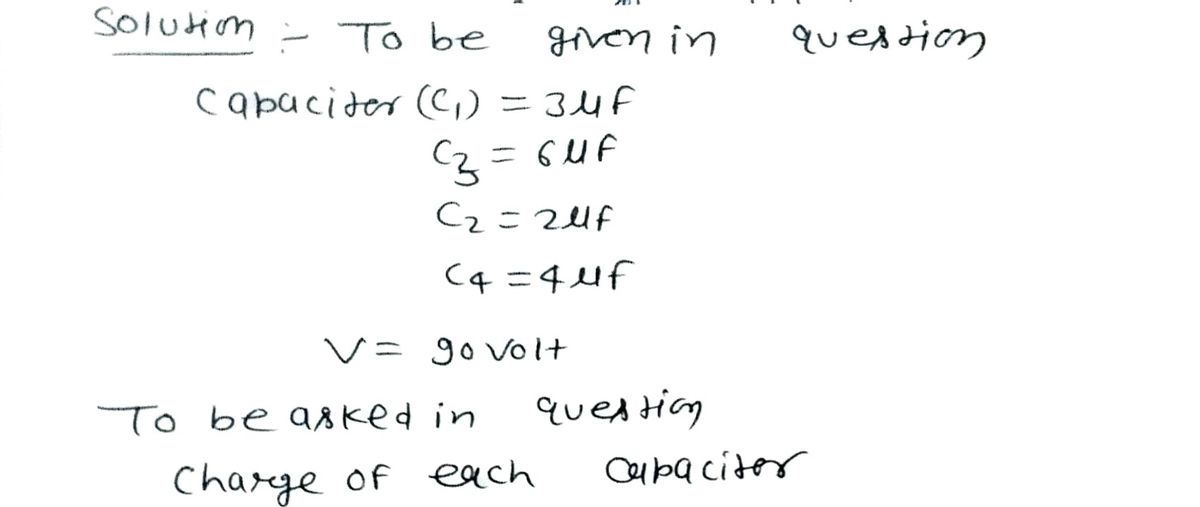 Solution :- To be given in question
Capacitor (C1) = 3μF
C3 = 6μF
C2 = 2μf
C4 = 4μf
V = 90 volt
To be asked in question
Charge of each capacitor